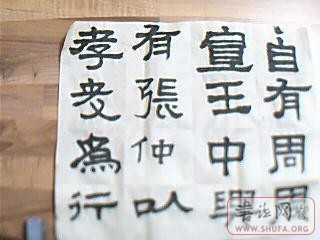 自有周周
宣王中興
有張仲以
孝友為行
書法网
WWW.SHUFA.ORG